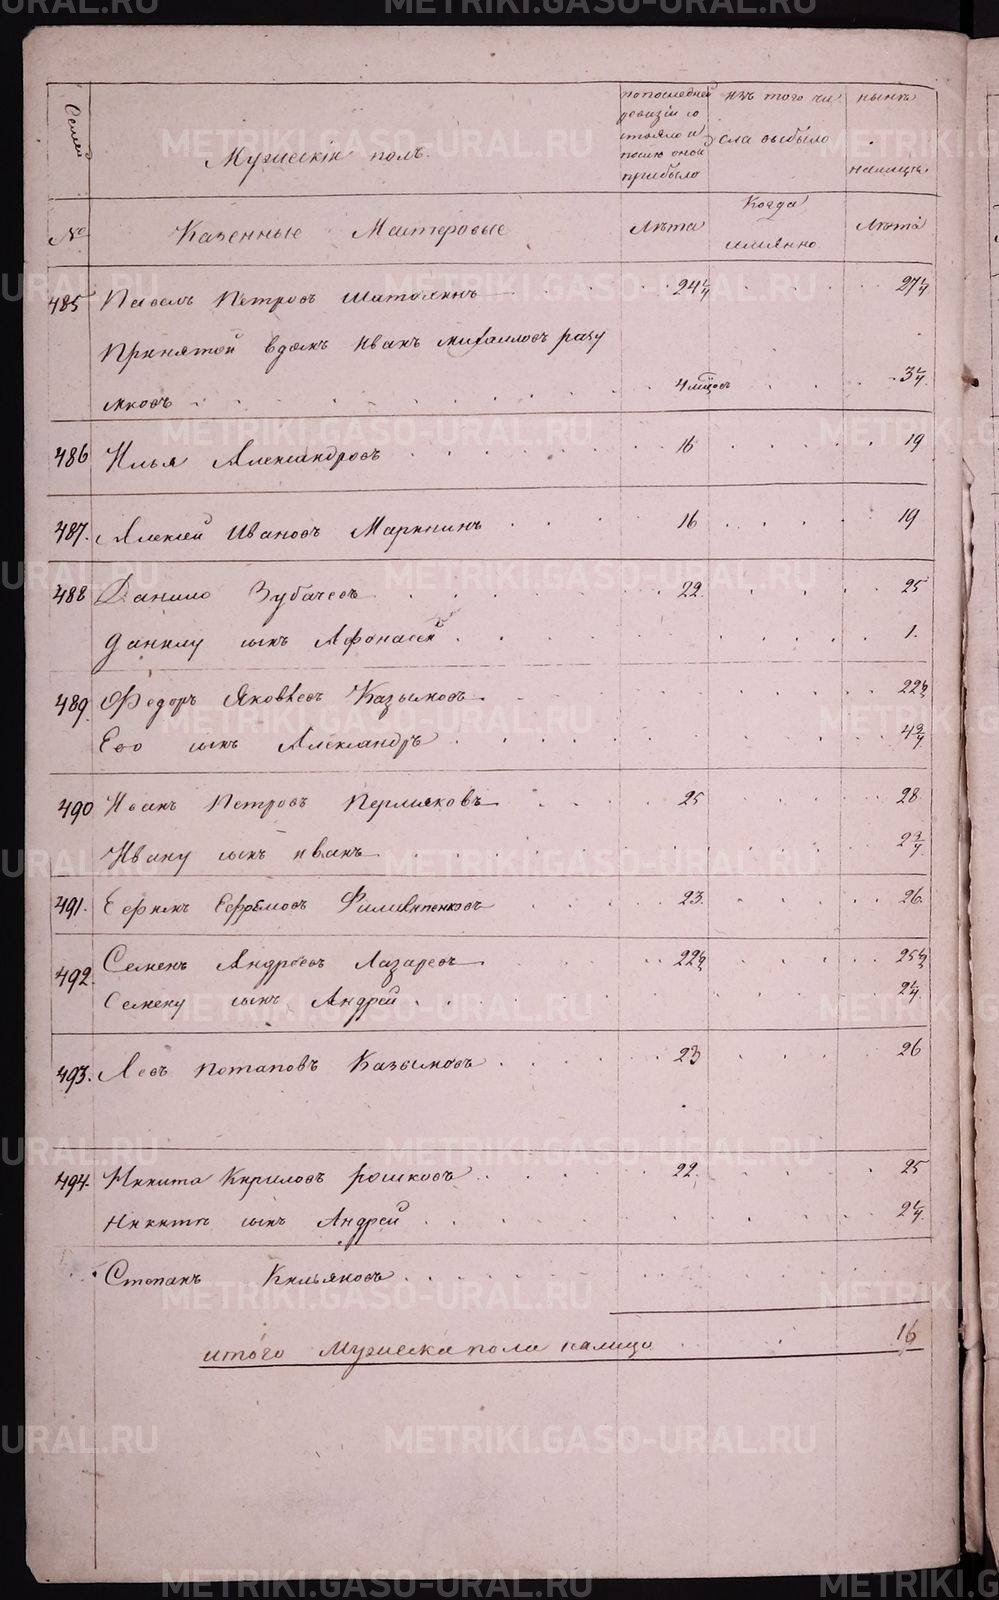 Семей
Мужескiй полъ.
по последней
ревизiи со
стояло и
после оной
прибыло
изъ того чи
сла выбыло
ныне
налицо
№
Казенные Мастеровые
Лѣта
Когда
имянно
Лѣта
485 Павелъ Петровъ 24 27
Принятой въ домъ Иванъ Михаиловъ разу
мковъ 4 мѣсцовъ 3
486 Илья Александровъ 16 19
487. Алексей Ивановъ Маркнинъ 16 19
488 Данило Зубачевъ 22. 25
Данилу сынъ Афонасей 1.
489. Федоръ Яковлевъ Казымовъ 22
Его сынъ Александръ 4
490 Иванъ Петровъ Пермяковъ 25 28
Ивану сынъ иванъ 2
491. Ефремовъ Филипенковъ 23. 26.
492. Семенъ Андреевъ Лазаревъ 22 25
Семену сынъ Андрей 2
493. Левъ Потаповъ Казымовъ 23 26
494. Никита Кириловъ рошковъ 22. 25
Никите сынъ Андрей 2
Степанъ Кильяновъ
итого Мужеска пола налицо 16
METRIKI.GASO-URAL.RU